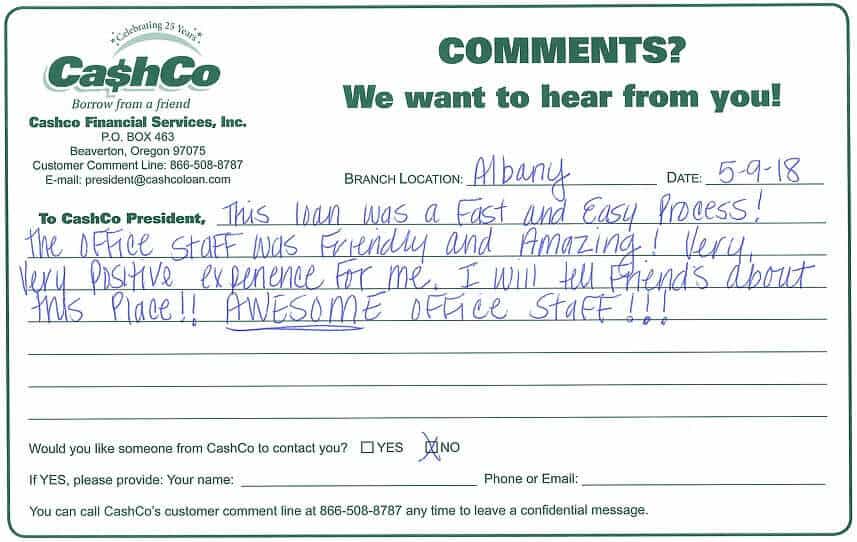 Celebrating 25 Years
Ca$hCo
Borrow from a friend
Cashco Financial Services, Inc.
P.O. BOX 463
Beaverton, Oregon 97075
Customer Comment Line: 866-508-8787
E-mail: president@cashcoloan.com
COMMENTS?
We want to hear from you!
BRANCH LOCATION: Albany DATE: 5-9-18
To CashCo President, This loan was a Fast and Easy Process!
The OFFICE STAFF was Friendly and Amazing! Very,
Very Positive experience For me. I will tell Friends about
this Place!! AWESOME OFFICE STAFF!!!
Would you like someone from CashCo to contact you? YES NO
If YES, please provide: Your name: Phone or Email:
You can call CashCo's customer comment line at 866-508-8787 any time to leave a confidential message.